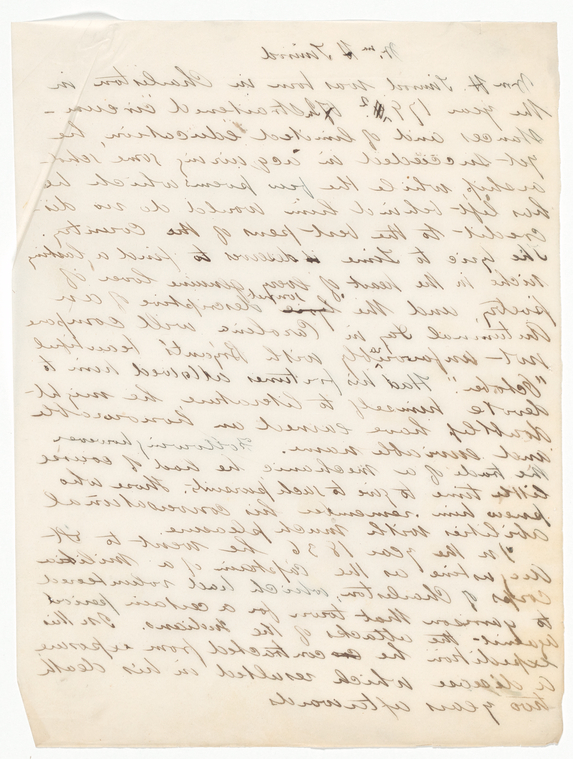 Wm H. Timrod
Wm H. Timrod was born in Charleston in
the year 1792. Of straitened circum-
stances and of limited education, he
yet succeeded in acquiring some schol-
arship while the few poems which he
has left behind him would do no dis-
credit to the best pens of the country.
The Ode to Time deserves to find a lasting
niche in the heart of every genuine lover of
poetry and the sonnet descriptive of an
Autumnal Day in Carolina will compare
not unfavorably with Bryant's beautiful
"October". Had his fortunes allowed him to
devote himself to literature he might
doubtless have earned an honorable
and durable name. Following however
the trade of a mechanic he had of course
little time to give to such pursuits. Those who
knew him remember his conversational
abilities with much pleasure.
In the year 1836 he went to St
Augustine as the Captain of a militia
corps of Charleston which had volunteered
to garrison that town for a certain period
against the attacks of the Indians. In this
expedition he contracted from exposure
a disease which resulted in his death
two years afterwards